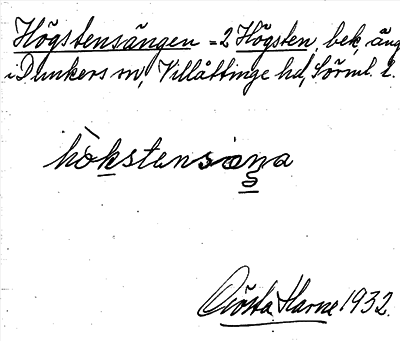 Högstensängen = 2 Högsten, bek, äng
i Dunkers sn, Villåttinge hd, Sörml. l.
hòkstensæŋa
Gösta Harne 1932.